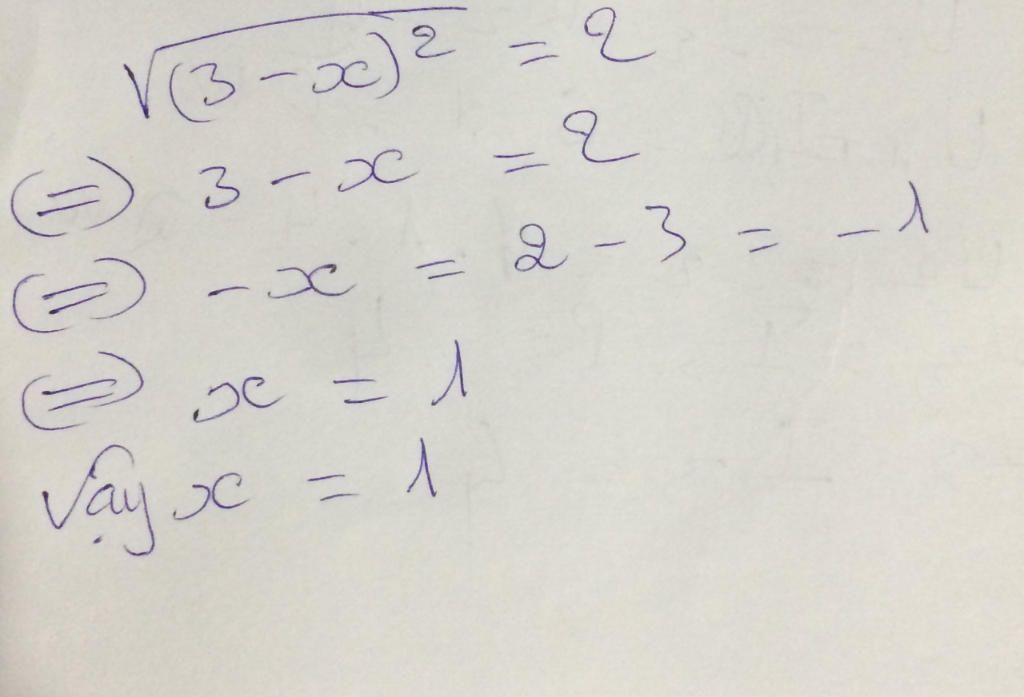 √(3 - x)² = 2
(=) 3 - x = 2
(=) - x = 2 - 3 = - 1
(=) x = 1
Vậy x = 1